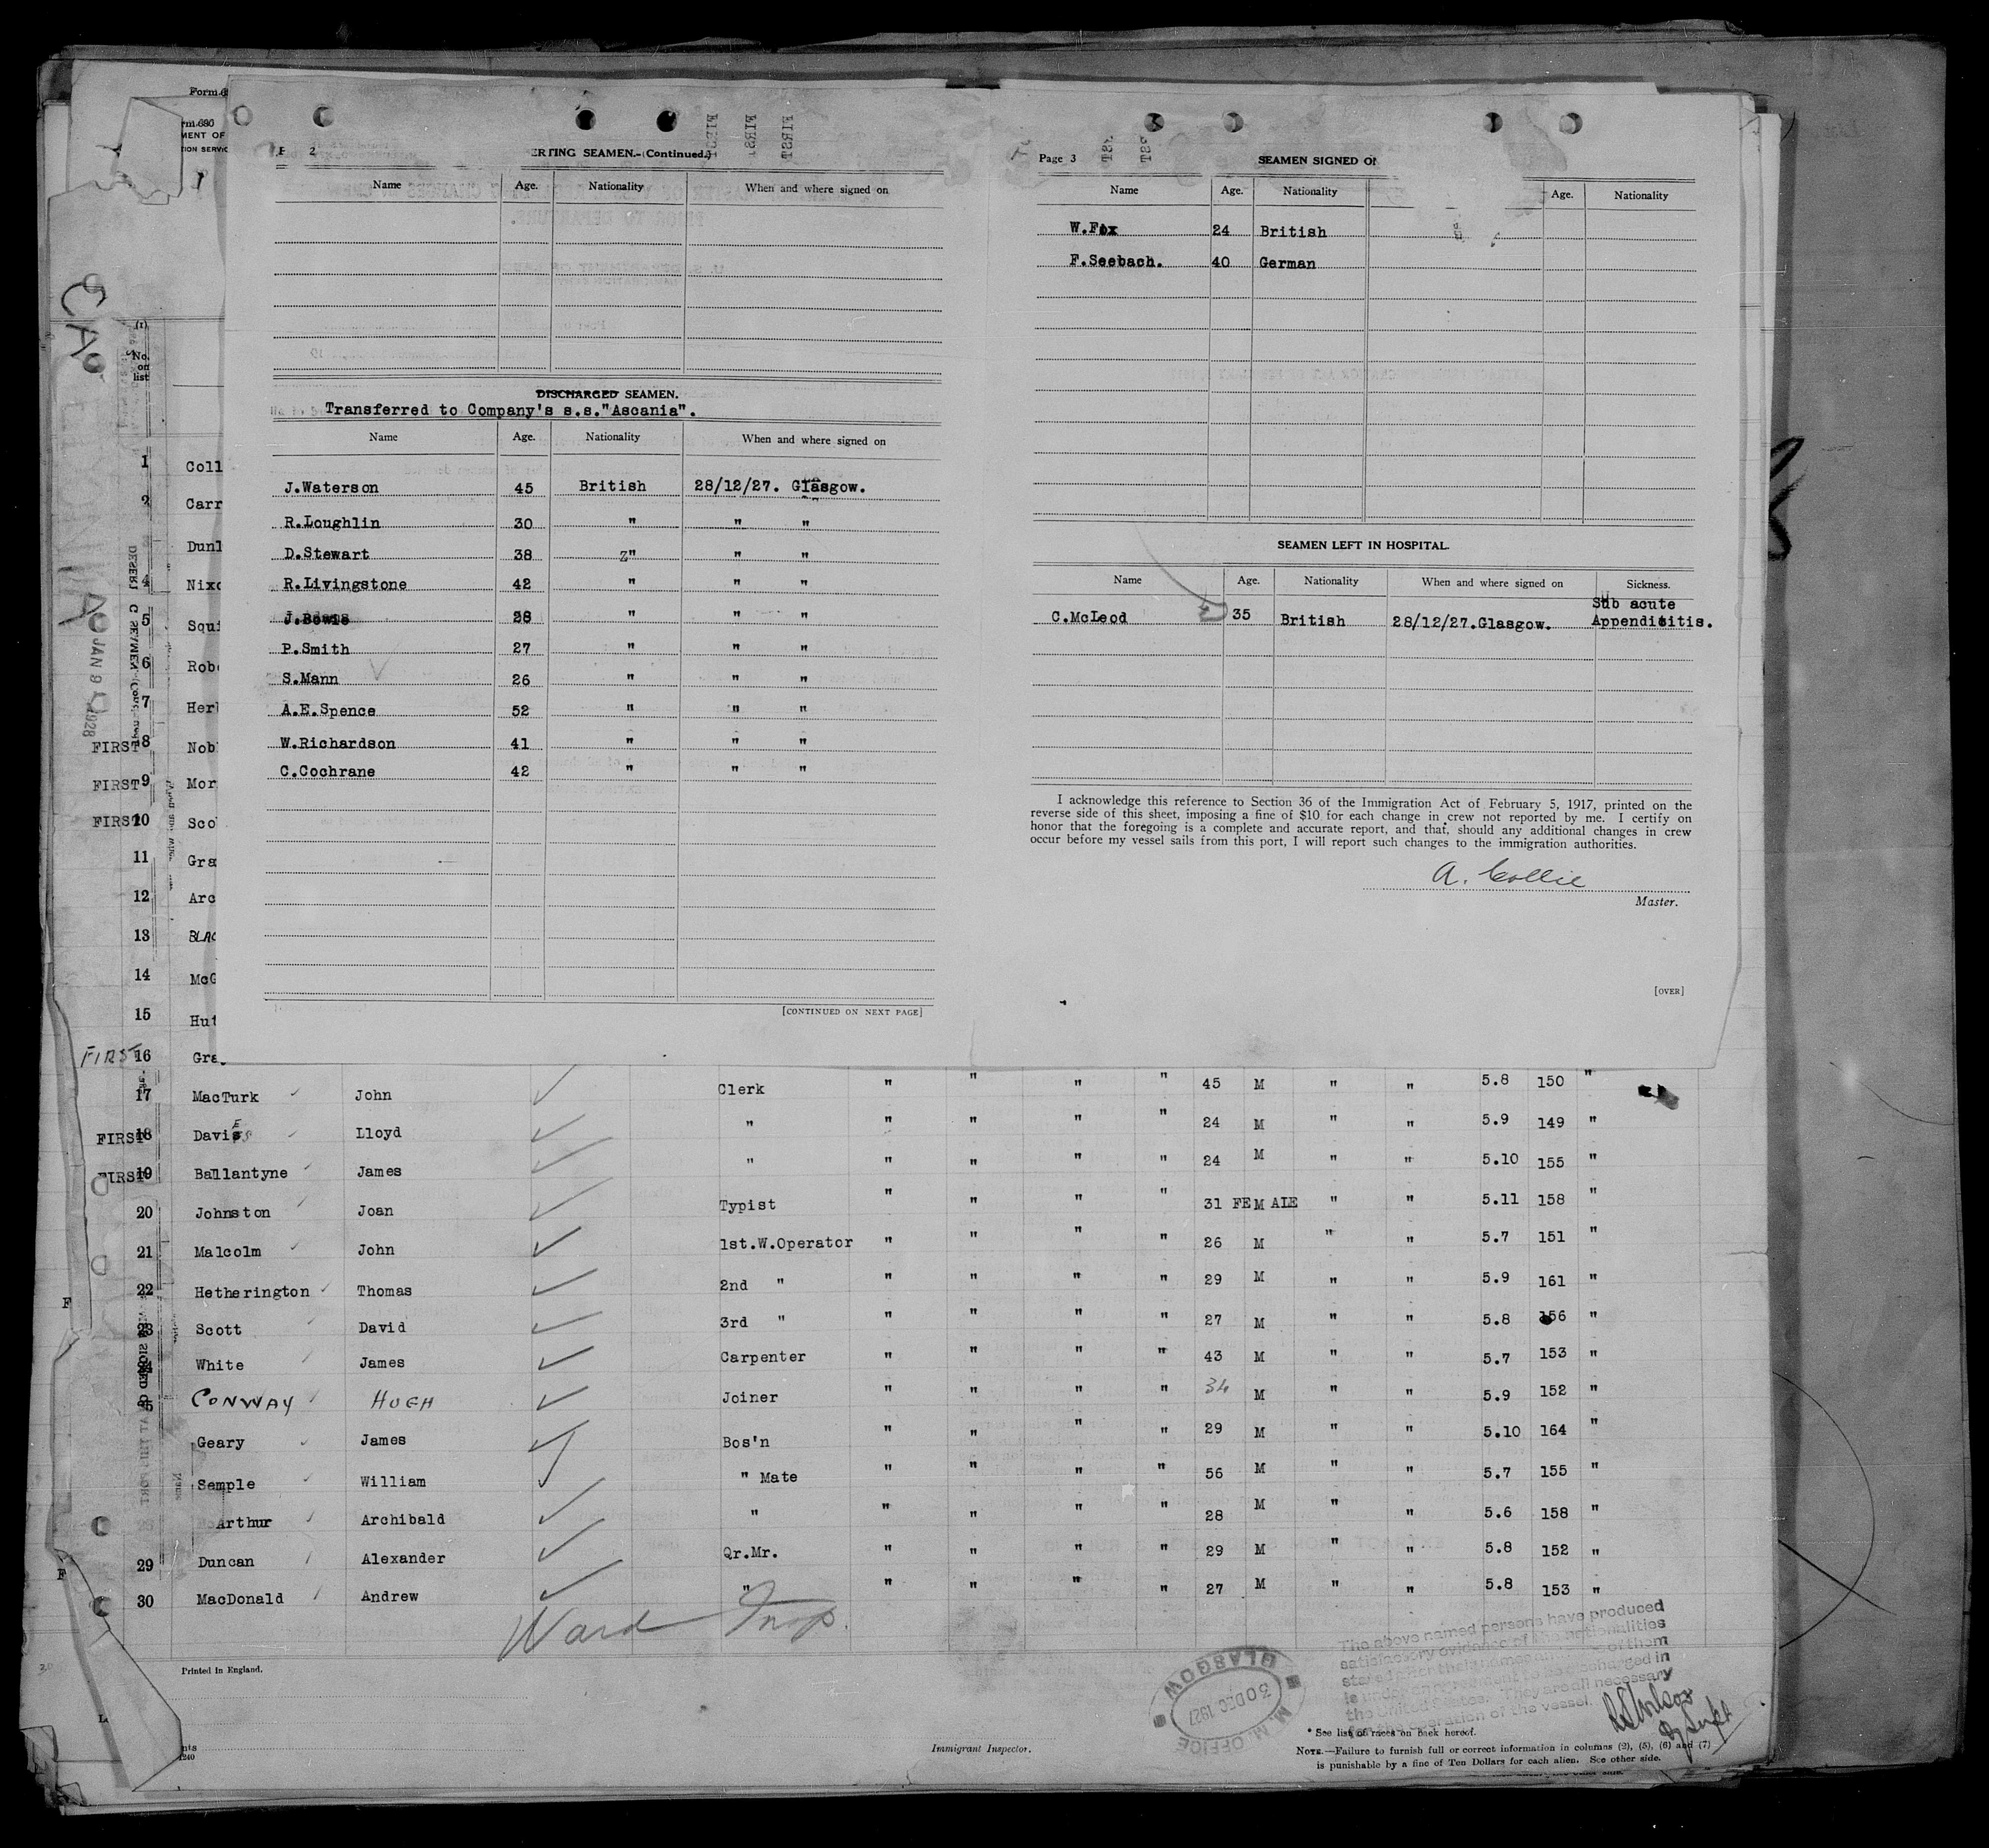 Form 6
rm 680
MENT OF
TION SERVIC
2 ERTING SEAMEN.-(Continued.)
FIRST FIRST FIRST
Name Age. Nationality When and where signed on
DISCHARGED SEAMEN.
Transferred to Company's s.s."Ascania".
Name Age. Nationality When and where signed on
J.Waterson 45 British 28/12/27. Glasgow.
R.Loughlin 30 " " "
D.Stewart 38 z" " "
R.Livingstone 42 " " "
J. 28 " " "
P.Smith 27 " " "
S.Mann 26 " " "
A.E.Spence 52 " " "
W.Richardson 41 " " "
C.Cochrane 42 " " "
[CONTINUED ON NEXT PAGE]
Page 3 SEAMEN SIGNED O
Name Age. Nationality Age. Nationality
W.Fox 24 British
F.Seebach. 40 German
SEAMEN LEFT IN HOSPITAL.
Name Age. Nationality When and where signed on Sickness.
C.McLeod 35 British 28/12/27.Glasgow. Sub acute
Appendicitis.
I acknowledge this reference to Section 36 of the Immigration Act of February 5, 1917, printed on the
reverse side of this sheet, imposing a fine of $10 for each change in crew not reported by me. I certify on
honor that the foregoing is a complete and accurate report, and that, should any additional changes in crew
occur before my vessel sails from this port, I will report such changes to the immigration authorities.
A. Collie
Master.
[OVER]
(1)
No.
on
list
JAN 9 1928
1 Coll
2 Carr
Dunl
4 Nixo
5 Squi
6 Rob
7 Her
FIRST 8 Nob
FIRST 9 Mor
FIRST 10 Sco
11 Gra
12 Arc
13 BLAC
14 McG
15 Hut
FIRST 16 Gra
17 MacTurk John Clerk " " " " 45 M " " 5.8 150 "
FIRST 18 Davies Lloyd " " " " " 24 M " " 5.9 149 "
FIRST 19 Ballantyne James " " " " " 24 M " " 5.10 155 "
20 Johnston Joan Typist " " " " 31 FEMALE " " 5.11 158 "
21 Malcolm John 1st.W.Operator " " " " 26 M " " 5.7 151 "
22 Hetherington Thomas 2nd " " " " " 29 M " " 5.9 161 "
23 Scott David 3rd " " " " " 27 M " " 5.8 156 "
White James Carpenter " " " " 43 M " " 5.7 153 "
CONWAY HUGH Joiner " " " " 34 M " " 5.9 152 "
Geary James Bos'n " " " " 29 M " " 5.10 164 "
Semple William " Mate " " " " 56 M " " 5.7 155 "
Arthur Archibald " " " " " 28 M " " 5.6 158 "
29 Duncan Alexander Qr.Mr. " " " " 29 M " " 5.8 152 "
30 MacDonald Andrew " " " " " 27 M " " 5.8 153 "
Ward Insp.
Printed in England.
1240
Immigrant Inspector.
M. M. OFFICE
30 DEC 1927
GLASGOW
The above named persons have produced
satisfactory evidence of the nationalities
stated after their names of them
is under an agreement to be discharged in
the United States. They are all necessary
for the operation of the vessel.
* See list of races on back hereof.
NOTE.—Failure to furnish full or correct information in columns (2), (5), (6) and (7)
is punishable by a fine of Ten Dollars for each alien. See other side.